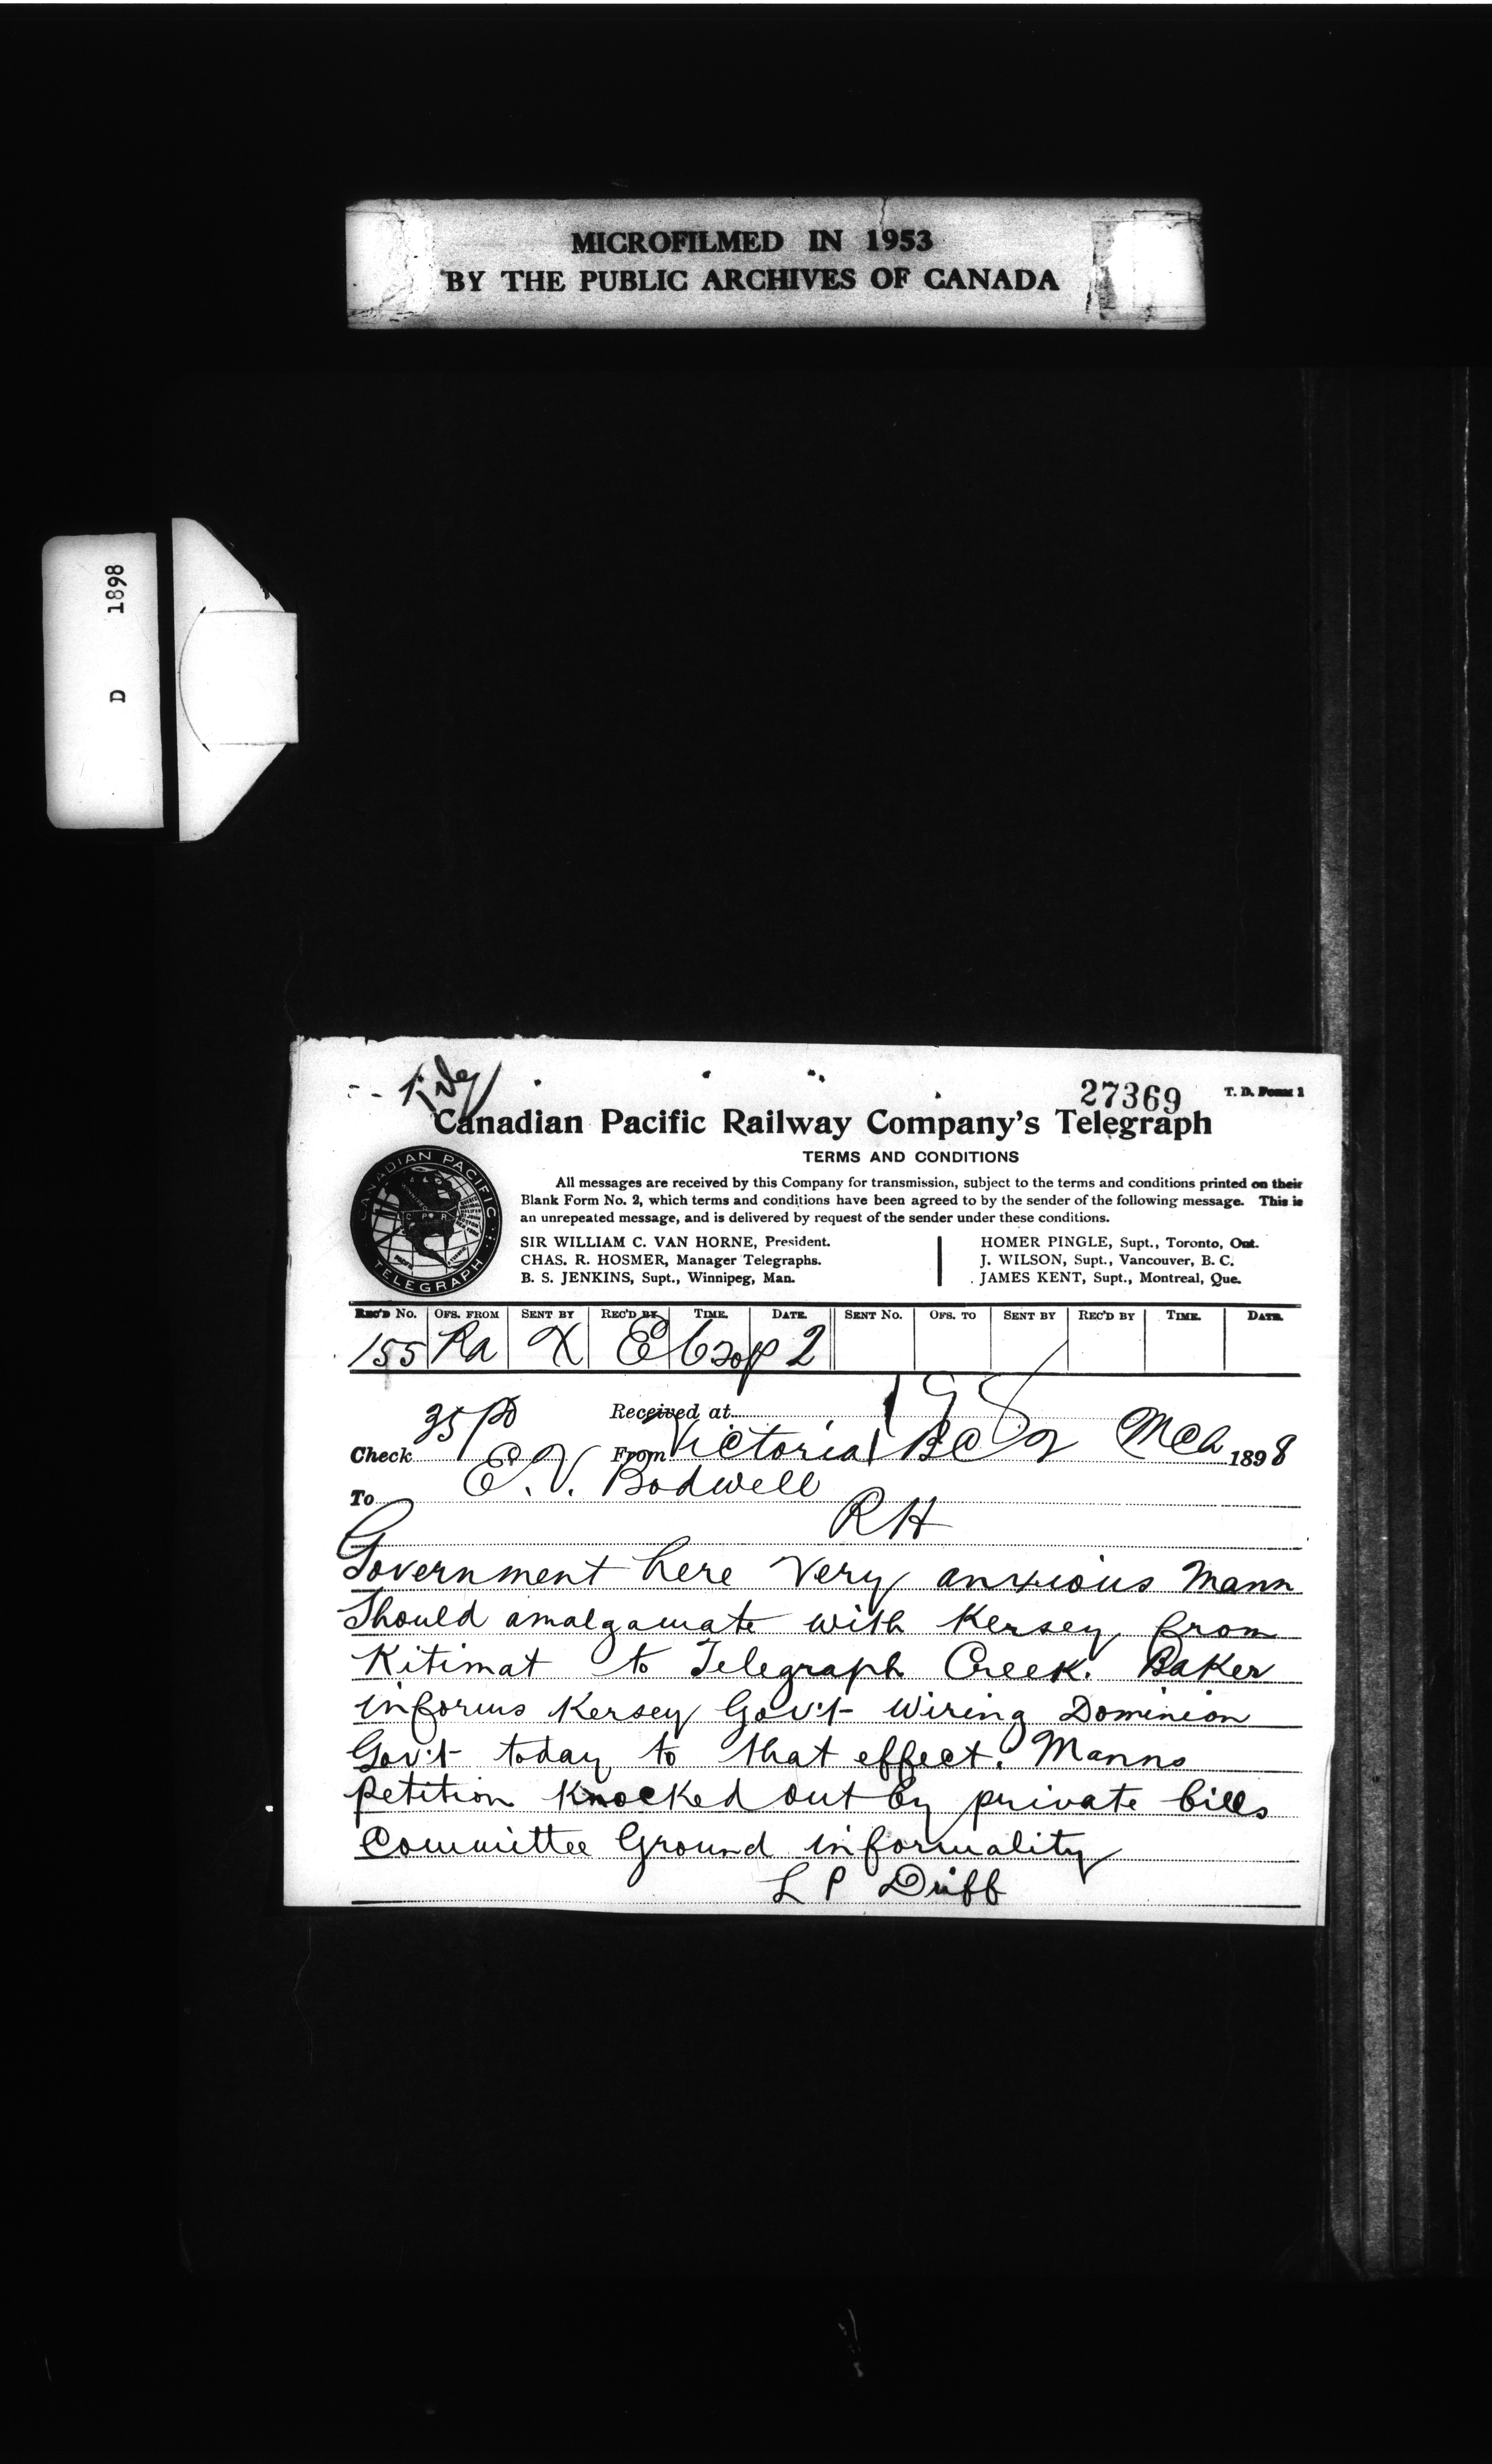 MICROFILMED IN 1953
BY THE PUBLIC ARCHIVES OF CANADA
D 1898
27369
T. D. Form 1
Canadian Pacific Railway Company's Telegraph
TERMS AND CONDITIONS
All messages are received by this Company for transmission, subject to the terms and conditions printed on their
Blank Form No. 2, which terms and conditions have been agreed to by the sender of the following message. This is
an unrepeated message, and is delivered by request of the sender under these conditions.
SIR WILLIAM C. VAN HORNE, President.
CHAS. R. HOSMER, Manager Telegraphs.
B. S. JENKINS, Supt., Winnipeg, Man.
HOMER PINGLE, Supt., Toronto, Ont.
J. WILSON, Supt., Vancouver, B. C.
JAMES KENT, Supt., Montreal, Que.
CANADIAN PACIFIC
C P R
TELEGRAPH
REC'D No. OFS. FROM SENT BY REC'D BY TIME. DATE. SENT No. OFS. TO SENT BY REC'D BY TIME. DATE.
155 Ra X E 2
Received at
Check 35 pd From Victoria BC 2 Mch 1898
To E. V. Bodwell
RH
Government here very anxious Mann
Should amalgamate with Kersey from
Kitimat to Telegraph Creek. Baker
informs Kersey Gov't wiring Dominion
Gov't today to that effect. Manns
petition knocked out by private bills
Committee Ground informality
L P Duff